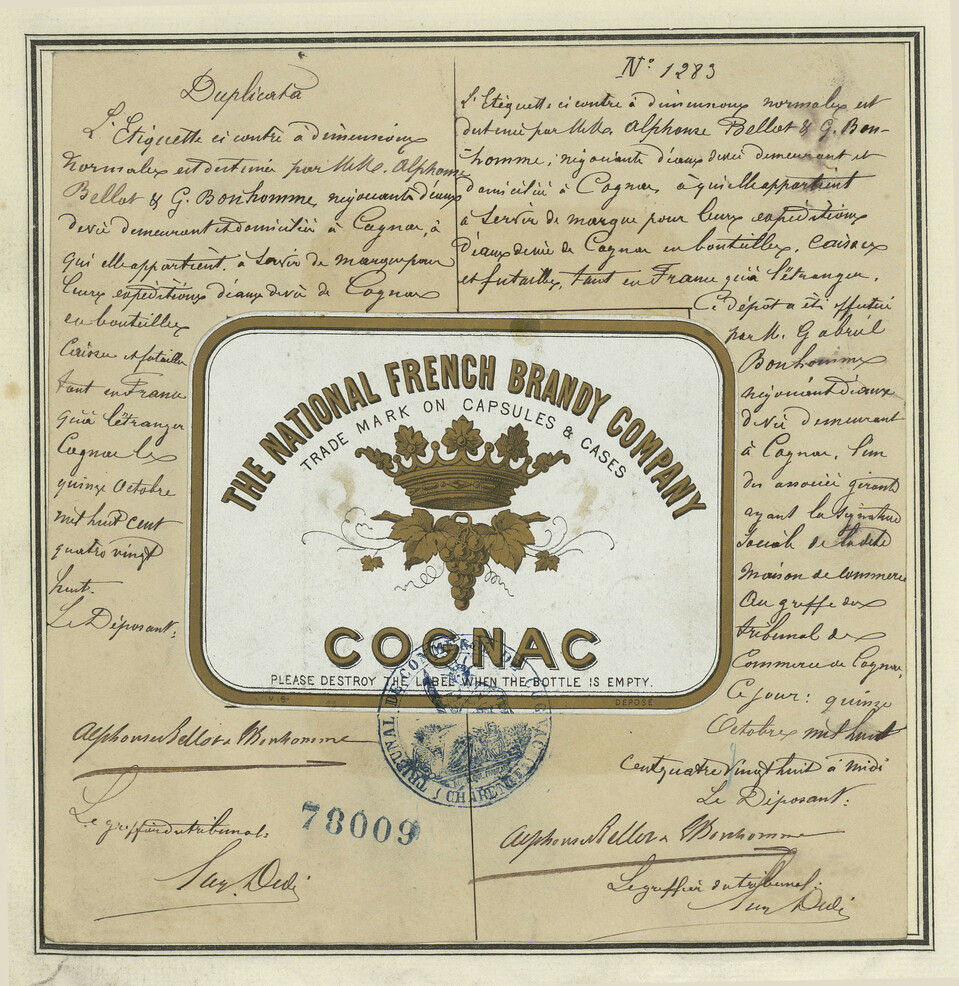 Duplicata
L'Etiquette ci contre à dimensions
normales est destinée par M.M. Alphonse
Bellot & G. Bonhomme, négociants d'eaux
de vie demeurant et domiciliés à Cognac, à
qui elle appartient, à servir de marque pour
leurs expéditions d'eaux de vie de Cognac
en bouteilles
Caisses et futailles
tant en France
qu'à l'étranger
Cognac le
quinze Octobre
mil huit cent
quatre vingt
huit.
Le Déposant:
Alphonse Bellot & Bonhomme
Le greffier du tribunal:
78009
N° 1283
L'Etiquette ci contre à dimensions normales est
destinée par M.M. Alphonse Bellot & G. Bon-
homme, négociants d'eaux de vie demeurant et
domiciliés à Cognac, à qui elle appartient
à servir de marque pour leurs expéditions
d'eaux de vie de Cognac en bouteilles, caisses
et futailles, tant en France qu'à l'étranger.
Ce dépot a été effectué
par M. Gabriel
Bonhomme
négociant d'eaux
de vie demeurant
à Cognac, l'un
des associés gérants
ayant la signature
sociale de la dite
maison de commerce
Au greffe du
tribunal de
Commerce de Cognac,
Ce jour: quinze
Octobre mil huit
cent quatre vingt huit à midi
Le Déposant:
Alphonse Bellot & Bonhomme
Le greffier du tribunal:
THE NATIONAL FRENCH BRANDY COMPANY
TRADE MARK ON CAPSULES & CASES
COGNAC
PLEASE DESTROY THE LABEL WHEN THE BOTTLE IS EMPTY.
DÉPOSÉ
TRIBUNAL DE COMMERCE DE COGNAC
(CHARENTE)